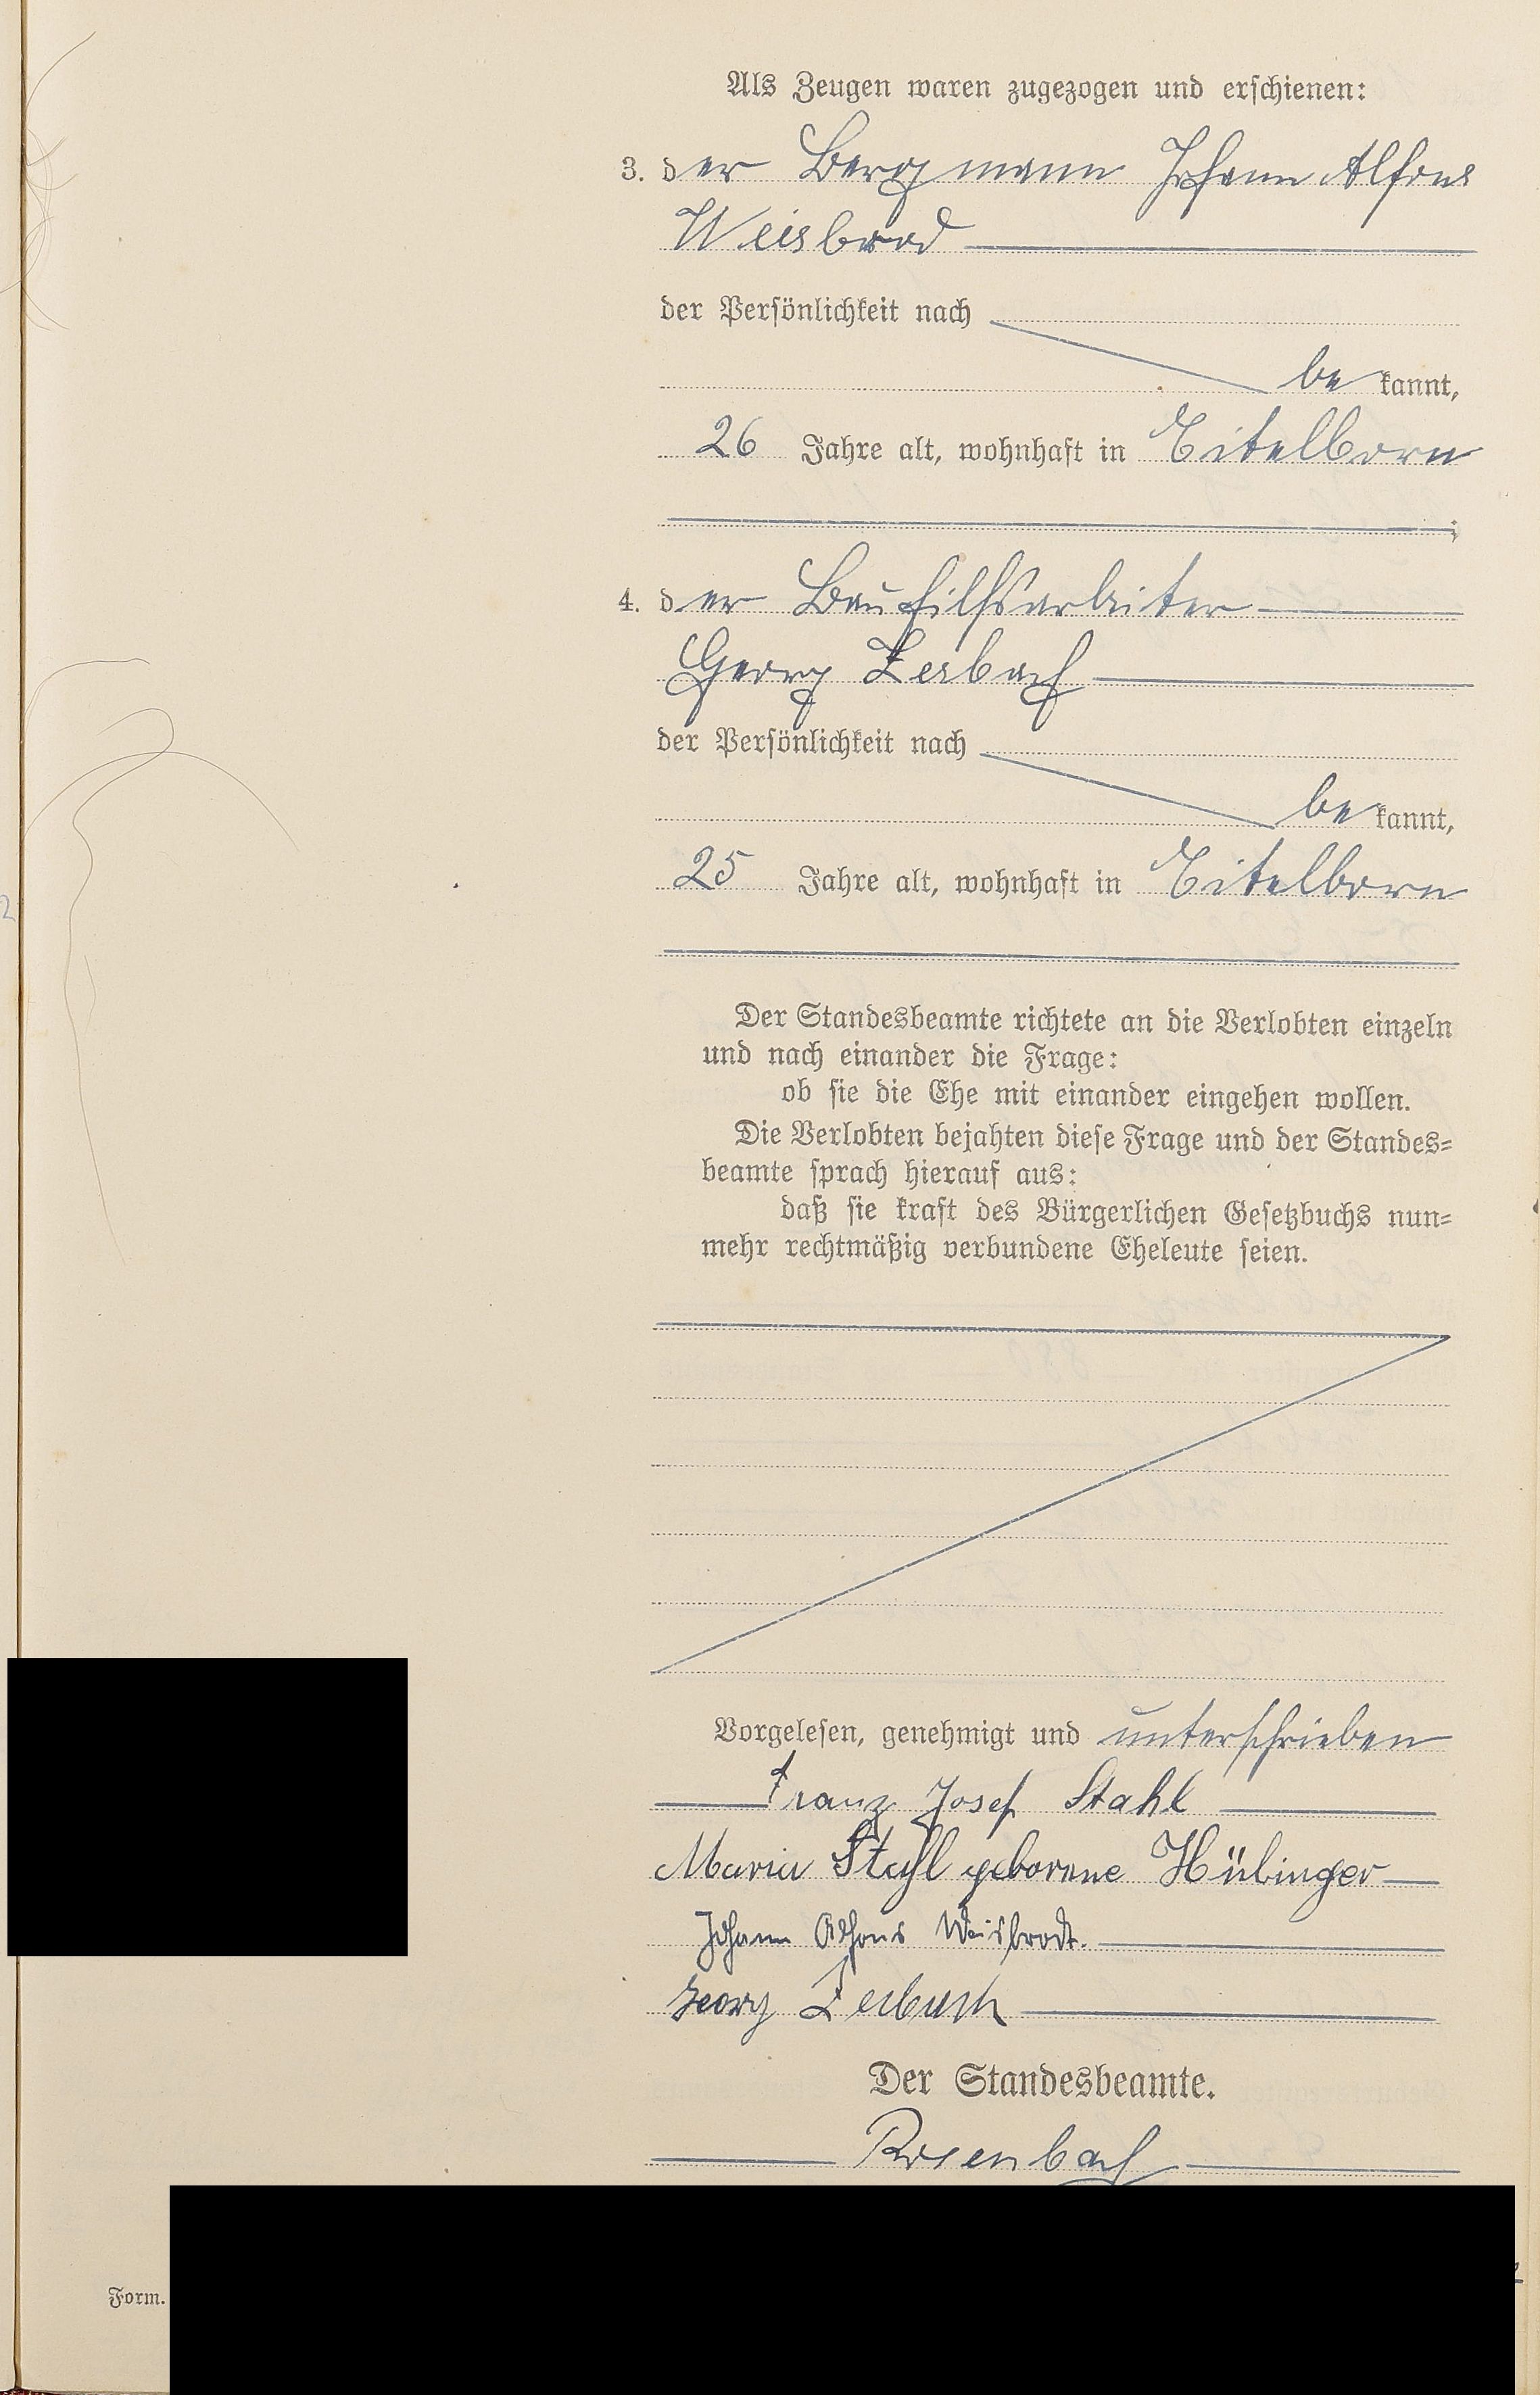 Als Zeugen waren zugezogen und erschienen:
3. der Bergmann Johann Alfons
Weisbrod
der Persönlichkeit nach
be kannt,
26 Jahre alt, wohnhaft in Eitelborn
;
4. der Bauhilfsarbeiter
Georg Zerbach
der Persönlichkeit nach
be kannt,
25 Jahre alt, wohnhaft in Eitelborn
Der Standesbeamte richtete an die Verlobten einzeln
und nach einander die Frage:
ob sie die Ehe mit einander eingehen wollen.
Die Verlobten bejahten diese Frage und der Standes=
beamte sprach hierauf aus:
daß sie kraft des Bürgerlichen Gesetzbuchs nun=
mehr rechtmäßig verbundene Eheleute seien.
Vorgelesen, genehmigt und unterschrieben
Franz Josef Stahl
Maria Stahl geborene Hübinger
Johann Alfons Weisbrodt.
Georg Zerbach
Der Standesbeamte.
Rosenbach
Form.